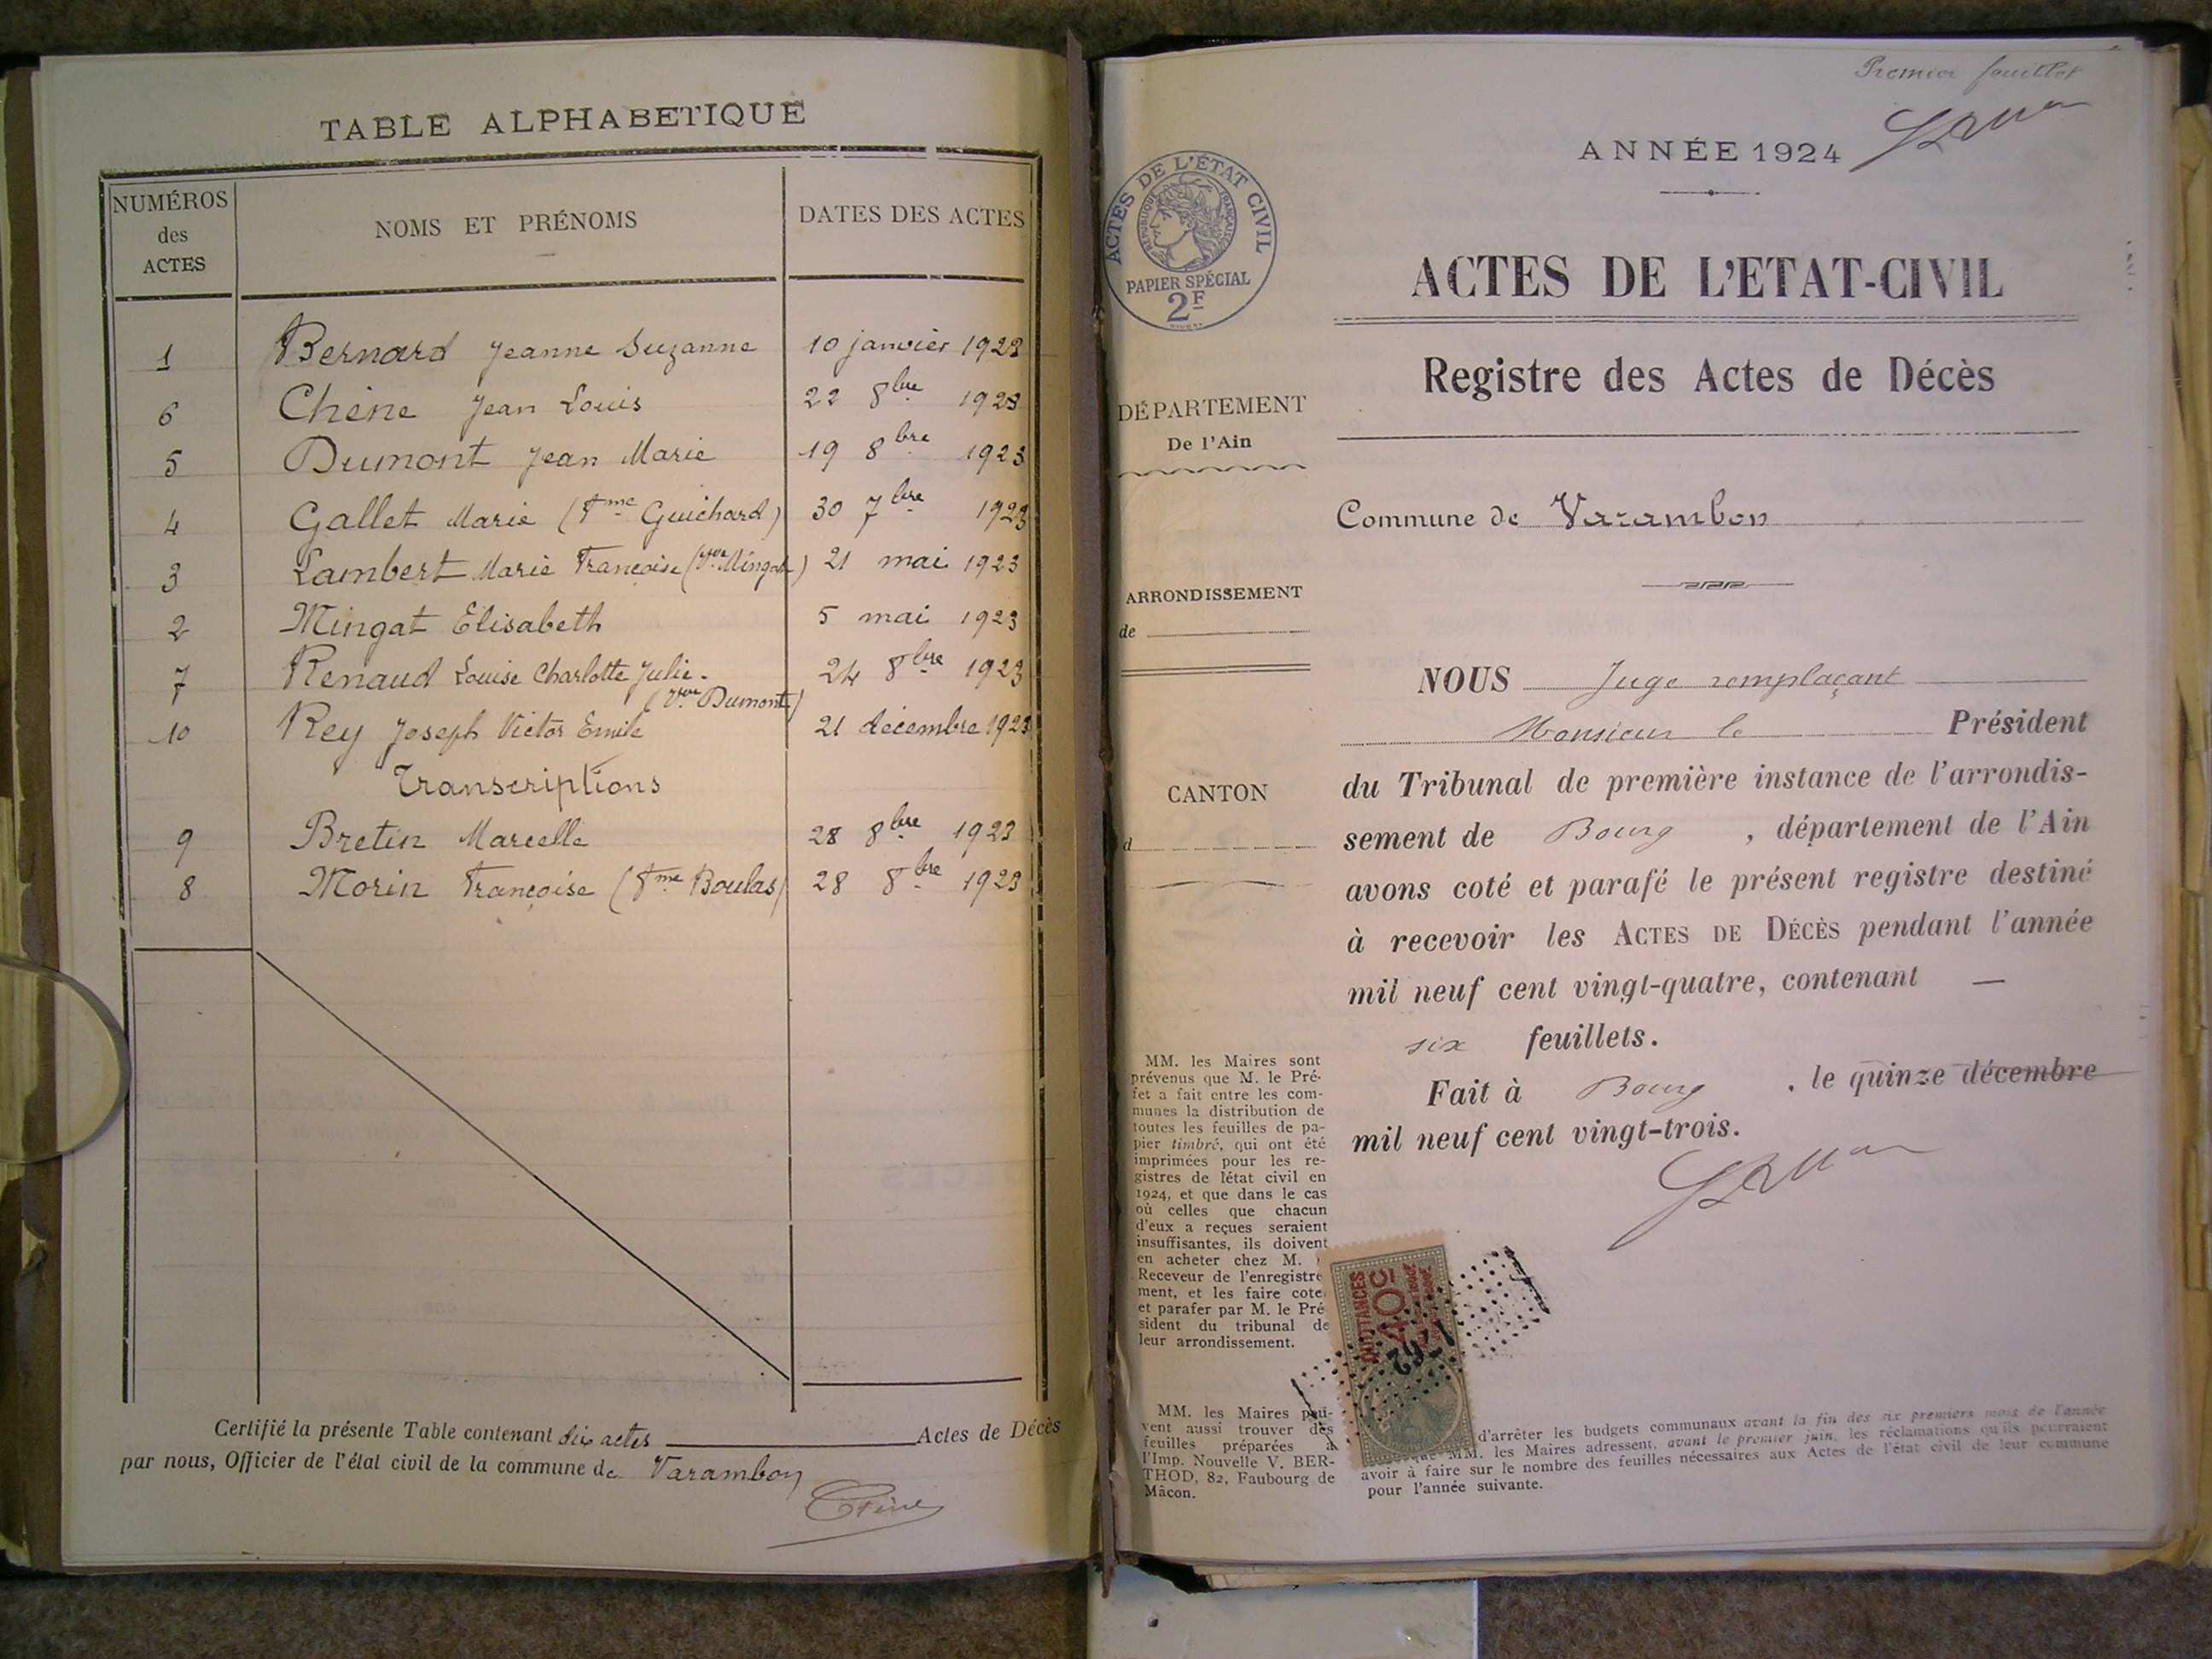 TABLE ALPHABETIQUE
NUMÉROS
des
ACTES
NOMS ET PRÉNOMS
DATES DES ACTES
1 Bernard Jeanne Suzanne 10 janvier 1923
6 Chêne Jean Louis 22 8bre 1923
5 Dumont Jean Marie 19 8bre 1923
4 Gallet Marie (Fme Guichard) 30 7bre 1923
3 Lambert Marie Françoise (Vve Mingat) 21 mai 1923
2 Mingat Elisabeth 5 mai 1923
7 Renaud Louise Charlotte Julie. 24 8bre 1923
(Vve Dumont)
10 Rey Joseph Victor Emile 21 décembre 1923
Transcriptions
9 Bretin Marcelle 28 8bre 1923
8 Morin Françoise (Fme Boulas) 28 8bre 1923
Certifié la présente Table contenant dix actes Actes de Décès
par nous, Officier de l'état civil de la commune de Varambon
Premier feuillet
ANNÉE 1924
ACTES DE L'ÉTAT CIVIL
RÉPUBLIQUE FRANÇAISE
PAPIER SPÉCIAL
2F
ACTES DE L'ETAT-CIVIL
Registre des Actes de Décès
DÉPARTEMENT
De l'Ain
Commune de Varambon
ARRONDISSEMENT
de
CANTON
d
NOUS Juge remplaçant
Monsieur le Président
du Tribunal de première instance de l'arrondis-
sement de Bourg , département de l'Ain
avons coté et parafé le présent registre destiné
à recevoir les ACTES DE DÉCÈS pendant l'année
mil neuf cent vingt-quatre, contenant —
six feuillets.
Fait à Bourg , le quinze décembre
mil neuf cent vingt-trois.
MM. les Maires sont
prévenus que M. le Pré-
fet a fait entre les com-
munes la distribution de
toutes les feuilles de pa-
pier timbré, qui ont été
imprimées pour les re-
gistres de létat civil en
1924, et que dans le cas
où celles que chacun
d'eux a reçues seraient
insuffisantes, ils doivent
en acheter chez M.
Receveur de l'enregistre
ment, et les faire cote
et parafer par M. le Pré
sident du tribunal de
leur arrondissement.
MM. les Maires peu-
vent aussi trouver des
feuilles préparées à
l'Imp. Nouvelle V. BER-
THOD, 82, Faubourg de
Mâcon.
QUITTANCES
40c
d'arrêter les budgets communaux avant la fin des six premiers mois de l'année
MM. les Maires adressent, avant le premier juin, les réclamations qu'ils pourraient
avoir à faire sur le nombre des feuilles nécessaires aux Actes de l'état civil de leur commune
pour l'année suivante.